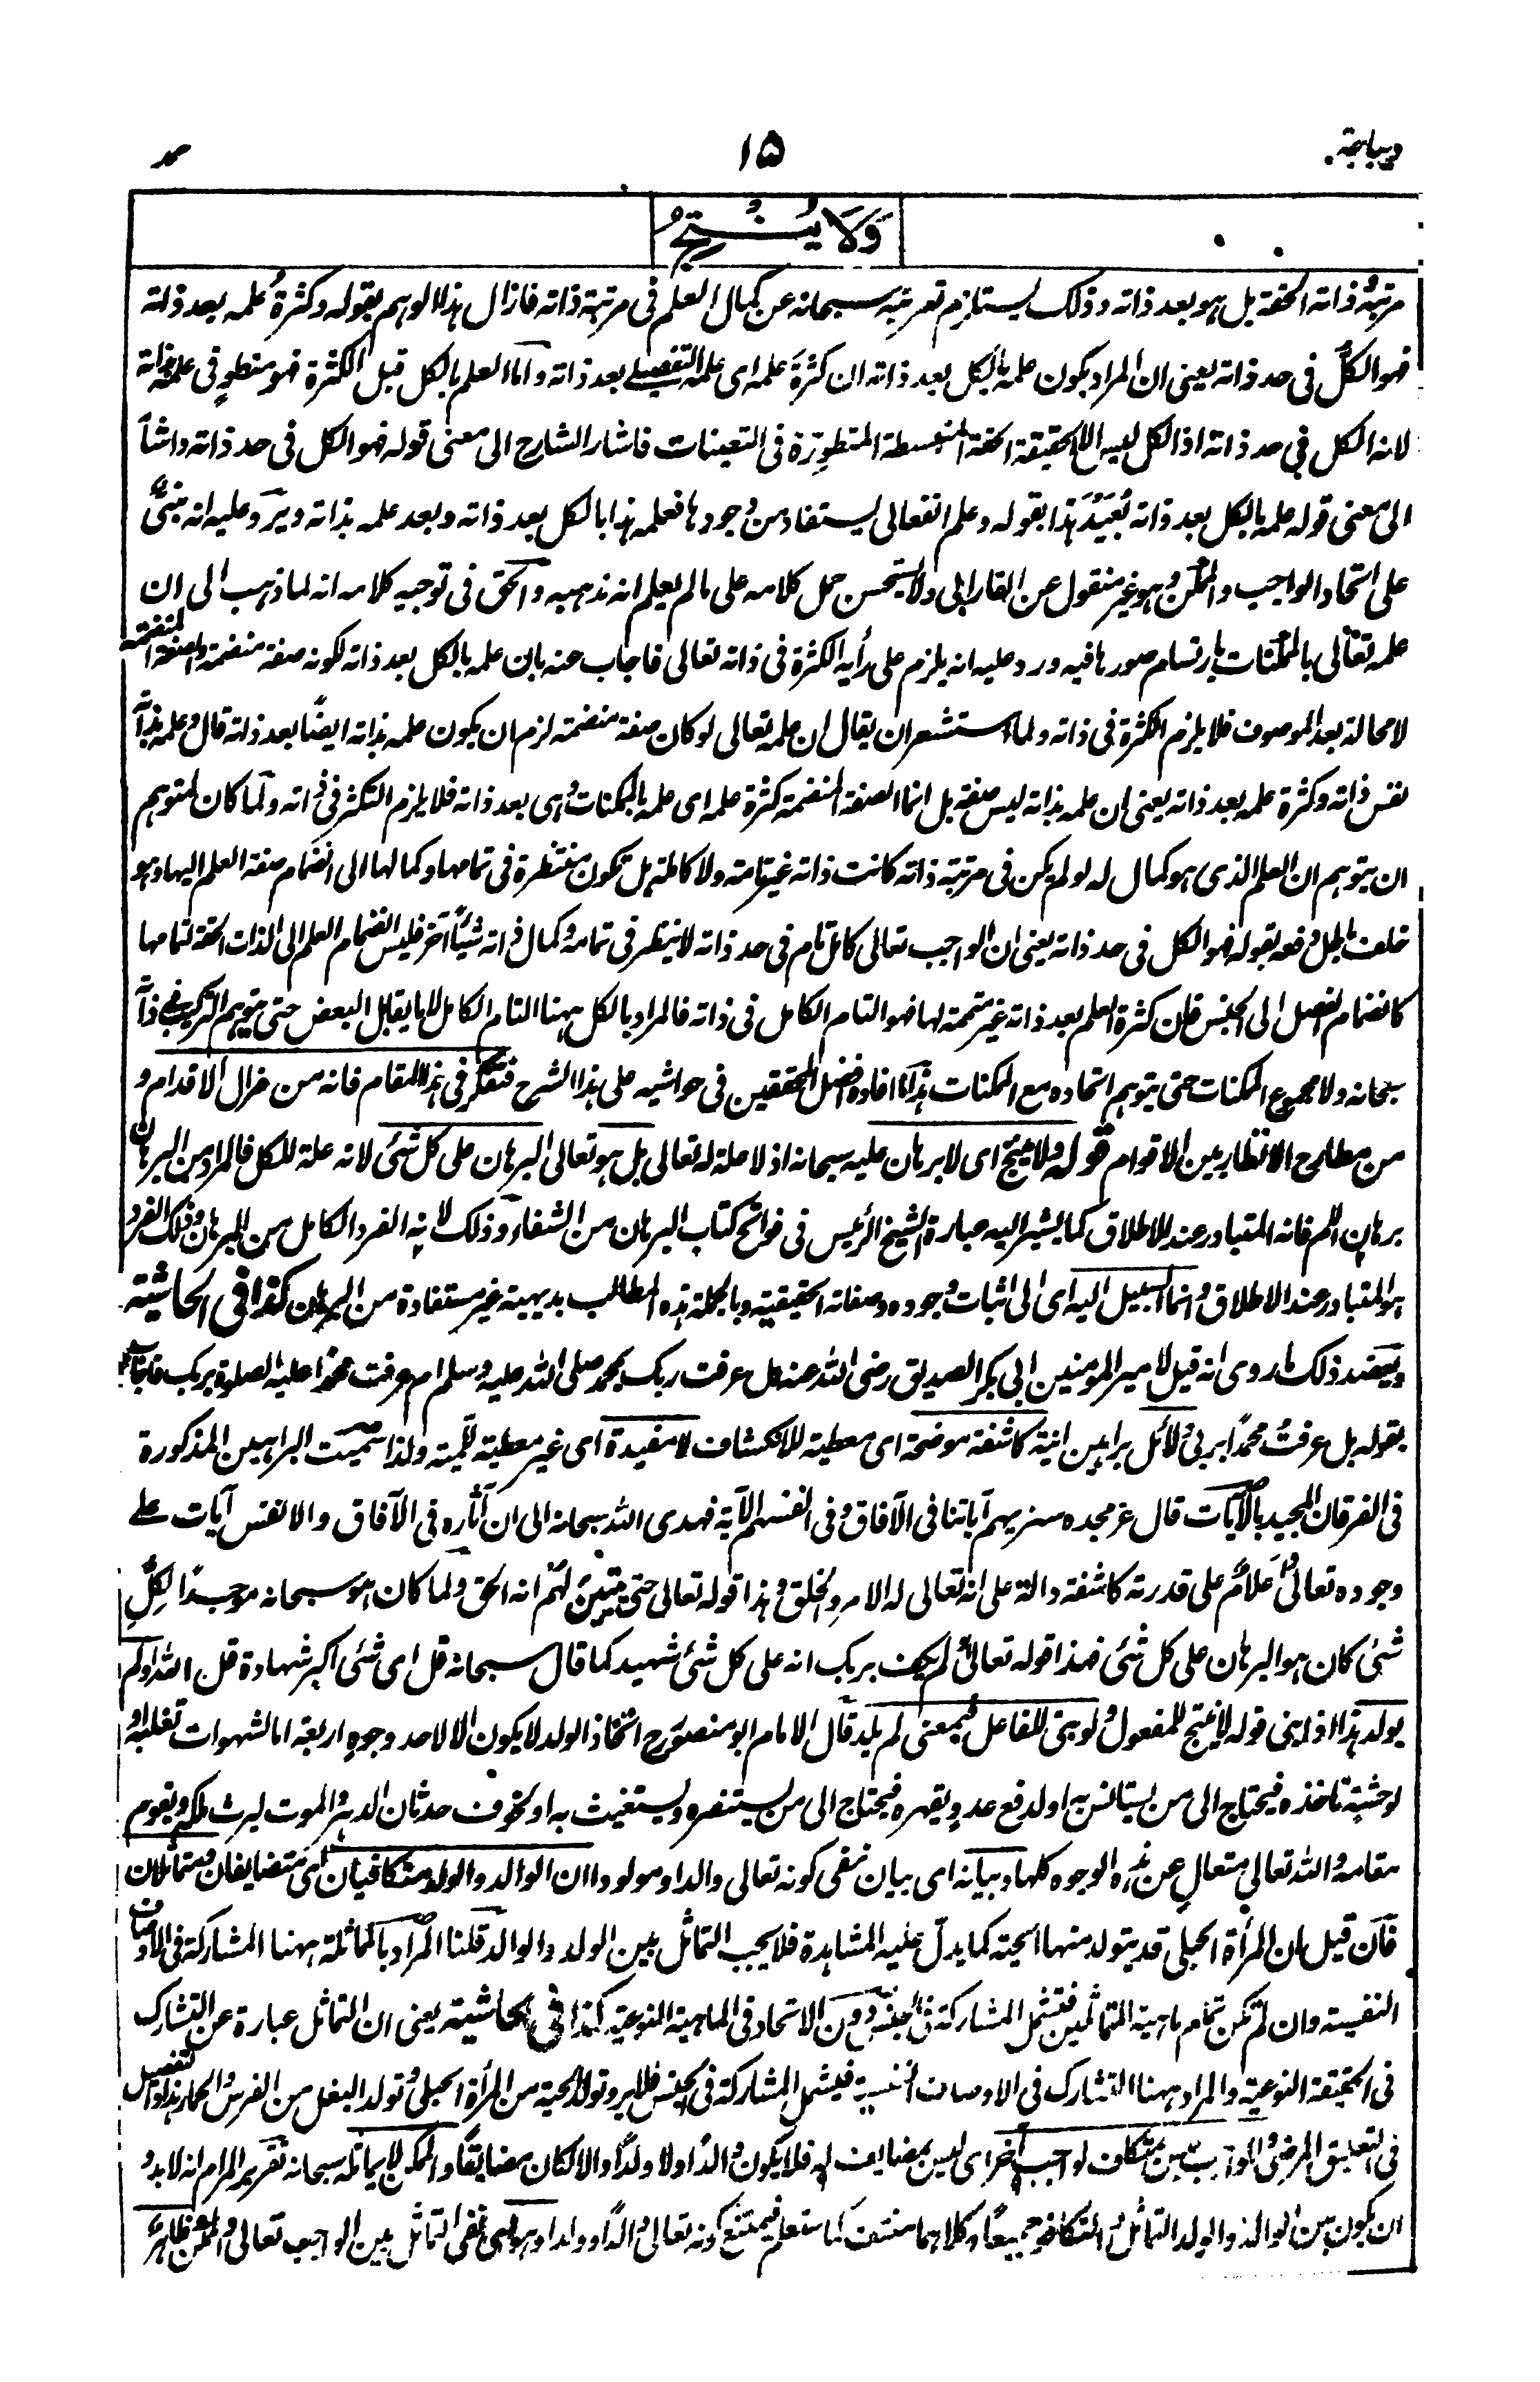 ديباجة
١٥
حمد
وَلَا يُنْتَجُ
مرتبة ذاته الحقة بل هو بعد ذاته وذلك يستلزم تعريته سبحانه عن كمال العلم فى مرتبة ذاته فازال هذا الوهم بقوله وكثرة علمه بعد ذاته
فهو الكل فى حد ذاته يعنى ان المراد بكون علمه بالكل بعد ذاته ان كثرة علمه اى علمه التفصيلے بعد ذاته واما العلم بالكل قبل الكثرة فهو منطوٍ فى علمه بذاته
لانه الكل فى حد ذاته اذ الكل ليس الا الحقيقة الحقة المنبسطة المتطورة فى التعينات فاشار الشارح الى معنى قوله فهو الكل فى حد ذاته واشار
الى معنى قوله علمه بالكل بعد ذاته بُعَيْدَ هذا بقوله وعلم انفعالى يستفاد من وجودها فعلمه هذا بالكل بعد ذاته وبعد علمه بذاته ويرد عليه انه مبنىٌّ
على اتحاد الواجب والممكن وهو غير منقول عن الفارابى ولا يستحسن حمل كلامه على ما لم يعلم انه مذهبه والحق فى توجيه كلامه انه لما ذهب الى ان
علمه تعالى بالممكنات بارتسام صورها فيه ورد عليه انه يلزم على رأيه الكثرة فى ذاته تعالى فاجاب عنه بان علمه بالكل بعد ذاته لكونه صفة منضمة والصفة المنضمة
لا محالة بعد الموصوف فلا يلزم الكثرة فى ذاته ولما استشعر ان يقال ان علمه تعالى لو كان صفة منضمة لزم ان يكون علمه بذاته ايضًا بعد ذاته قال وعلمه بذاته
نفس ذاته وكثرة علمه بعد ذاته يعنى ان علمه بذاته ليس صفة بل انما الصفة المنضمة كثرة علمه اى علمه بالممكنات وهى بعد ذاته فلا يلزم التكثر فى ذاته ولما كان لمتوهم
ان يتوهم ان العلم الذى هو كمال له لو لم يكن فى مرتبة ذاته كانت ذاته غير تامة ولا كاملة بل تكون منتظرة فى تمامها وكمالها الى انضمام صفة العلم اليها وهو
خلف باطل دفعه بقوله فهو الكل فى حد ذاته يعنى ان الواجب تعالى كامل تام فى حد ذاته لا ينتظر فى تمامه وكمال ذاته شيئًا آخر فليس انضمام العلم الى الذات الحقة لتمامها
كانضمام الفصل الى الجنس فان كثرة العلم بعد ذاته غير متممة لها فهو التام الكامل فى ذاته فالمراد بالكل ههنا التام الكامل لا ما يقابل البعض حتى يتوهم التركيب فى ذاته
سبحانه ولا مجموع الممكنات حتى يتوهم اتحاده مع الممكنات هذا ما افاده افضل المحققين فى حواشيه على هذا الشرح فتفكر فى هذا المقام فانه من مزال الاقدام و
من مطارح الانظار بين الاقوام قوله ولا ينتج اى لا برهان عليه سبحانه اذ لا علة له تعالى بل هو تعالى البرهان على كل شئ لانه علة للكل فالمراد من البرهان
برهان اللم فانه المتبادر عند الاطلاق كما يشير اليه عبارة الشيخ الرئيس فى فواتح كتاب البرهان من الشفاء وذلك لانه الفرد الكامل من البرهان وذلك الفرد
هو المتبادر عند الاطلاق وانما السبيل اليه اى الى اثبات وجوده وصفاته الحقيقية وبالجملة هذه المطالب بديهية غير مستفادة من البرهان كذا فى الحاشية
ويعضد ذلك ما روى انه قيل لامير المومنين ابى بكر الصديق رضى الله عنه هل عرفت ربك بمحمد صلى الله عليه وسلم ام عرفت محمدًا عليه الصلوة بربك فاجاب
بقوله بل عرفت محمدًا بربى دلائل براهين انية كاشفة موضحة اى معطية للانكشاف لا مفيدة اى غير معطية للمية ولذا سميت البراهين المذكورة
فى الفرقان المجيد بالآيات قال عز مجده سنريهم آياتنا فى الآفاق وفى انفسهم الآية فهدى الله سبحانه الى ان آثاره فى الآفاق والانفس آيات على
وجوده تعالى وعلام على قدرته كاشفة دالة على انه تعالى له الامر والخلق وهذا قوله تعالى حتى يتبين لهم انه الحق ولما كان هو سبحانه موجدًا لكل
شئ كان هو البرهان على كل شئ فهذا قوله تعالى او لم يكف بربك انه على كل شئ شهيد كما قال سبحانه قل اى شئ اكبر شهادة قل الله او لم
يولد هذا اذا بنى قوله لا ينتج للمفعول ولو بنى للفاعل فبمعنى لم يلد قال الامام ابو منصور رح اتخاذ الولد لا يكون الا لاحد وجوه اربعة اما لشهوات تغلبه او
لوحشة تأخذه فيحتاج الى من يستانس به او لدفع عدو يقهره فيحتاج الى من يستنصره ويستغيث به او لخوف حدثان الدهر والموت ليرث ملكه ويقوم
مقامه والله تعالى متعال عن هذه الوجوه كلها وبيانه اى بيان نفى كونه تعالى والدا ومولودا ان الوالد والولد متكافيان اى متضايفان ومتماثلان
فان قيل ان المرأة الحبلى قد يتولد منها الحية كما يدل عليه المشاهدة فلا يجب التماثل بين الولد والوالد قلنا المراد بالمماثلة ههنا المشاركة فى الاوصاف
النفسية وان لم تكن تمام ماهية المتماثلين فتشمل المشاركة فى الجنس دون الاتحاد فى الماهية النوعية كذا فى الحاشية يعنى ان التماثل عبارة عن التشارك
فى الحقيقة النوعية والمراد ههنا التشارك فى الاوصاف النفسية فيشمل المشاركة فى الجنس فلا يرد تولد الحية من المرأة الحبلى وتولد البغل من الفرس والحمار هذا والتفصيل
فى التعليق المرضى والواجب ليس بمتكاف لواجب آخر اى ليس بمضايف له فلا يكون والدًا ولا ولدًا والا لكان مضايفًا والممكن لا يماثله سبحانه تقرير المرام انه لا بد و
ان يكون بين الوالد والولد التماثل والتكافؤ جميعًا وكلاهما منتف لما ستعلم فيمتنع كونه تعالى والدًا وولدا وهو نفى التماثل بين الواجب تعالى والممكن ظاهر